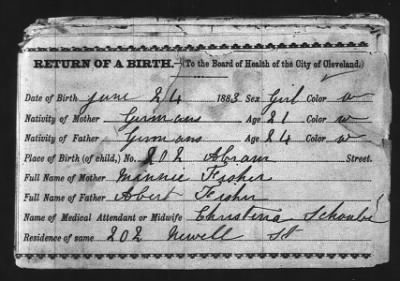 RETURN OF A BIRTH.—(To the Board of Health of the City of Cleveland.)
Date of Birth June 24 1883 Sex Girl Color w
Nativity of Mother Germans Age 21 Color w
Nativity of Father Germans Age 24 Color w
Place of Birth (of child,) No. 202 Abram Street.
Full Name of Mother Minnie Fisher
Full Name of Father Abert Fisher
Name of Medical Attendant or Midwife Christina
Residence of same 202 Newell St